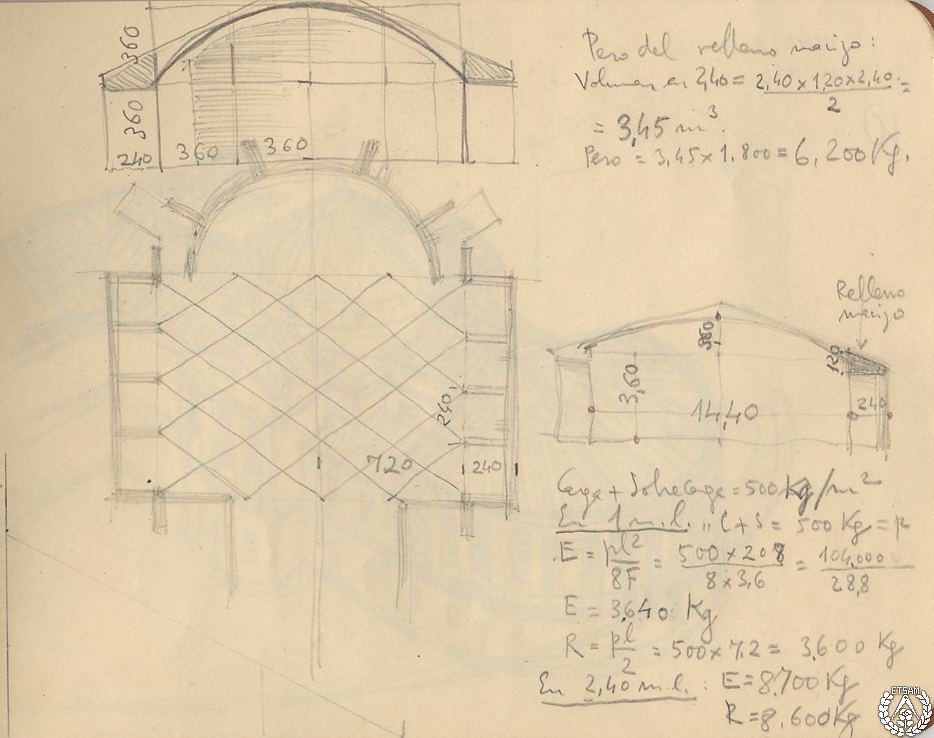 360
360
240
360
360
Peso del relleno macizo:
Volumen en 2,40 = 2,40 x 1,20 x 2,40 / 2 =
= 3,45 m³.
Peso = 3,45 x 1.800 = 6,200 Kg.
240
720
240
Relleno
macizo
380
120
3,60
14,40
240
Carga + Sobrecarga = 500 Kg/m²
En 1 m.l. " C + S = 500 Kg = p
E = pl² / 8F = 500 x 208 / 8 x 3,6 = 104,000 / 28,8
E = 3,640 Kg
R = pl / 2 = 500 x 7,2 = 3,600 Kg
En 2,40 m.l.: E = 8,700 Kg
R = 8,600 Kg
ETSAM